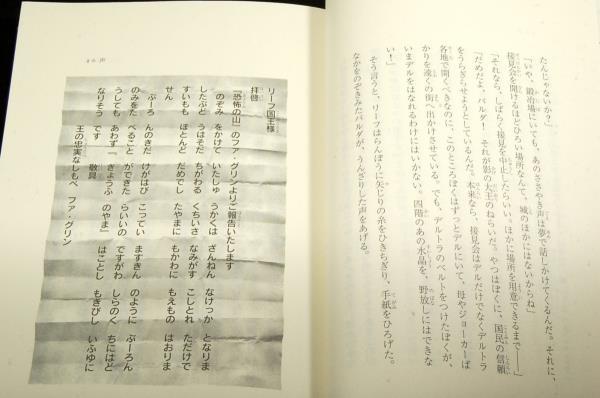 たんじゃないか？」
「いや、鍛冶場にいても、あのささやき声は夢で話しかけてくるんだ。それに、
接見会を開けるほどひろい場所なんて、城のほかにはないからね」
「それなら、しばらく接見を中止したらいい。ほかに場所を用意できるまで――」
「だめだよ、バルダ！　それが影の大王のねらいだ。やつはぼくに、国民の信頼
をうらぎらせようとしているんだ。本来なら、接見会はデルだけでなくデルトラ
各地で開くべきなのに、このところぼくはずっとデルにいて、母やジョーカーば
かりを遠くの街へ出かけさせている。でも、デルトラのベルトをつけたぼくが、
いまデルをはなれるわけにはいかない。四階のあの水晶を、野放しにはできな
い！」
そう言うと、リーフはらんぼうに矢じりの糸をひきちぎり、手紙をひろげた。
なかをのぞきみたバルダが、うんざりした声をあげる。
リーフ国王様
拝啓
『恐怖の山』のファ・グリンよりご報告いたします
のぞみ　をかけて　いたしゅ　うかくは　ざんねん　なけっか　となりま
したぶど　うはそだ　ちがわる　くちいさ　なみがす　こしとれ　ただけで
すいもも　ほとんど　だめでし　たやまに　もかわに　もえもの　はおりま
せん
ぶーろ　んのきだ　けがはび　こってい　ますきん　のように　ぶーろん
のみをた　べること　ができた　らいいの　ですがわ　しらのく　ちにはど
うしても　あわず　“きょうふ　のやま”　はことし　もきびし　いふゆに
なりそう　です　敬具
王の忠実なしもべ　ファ・グリン